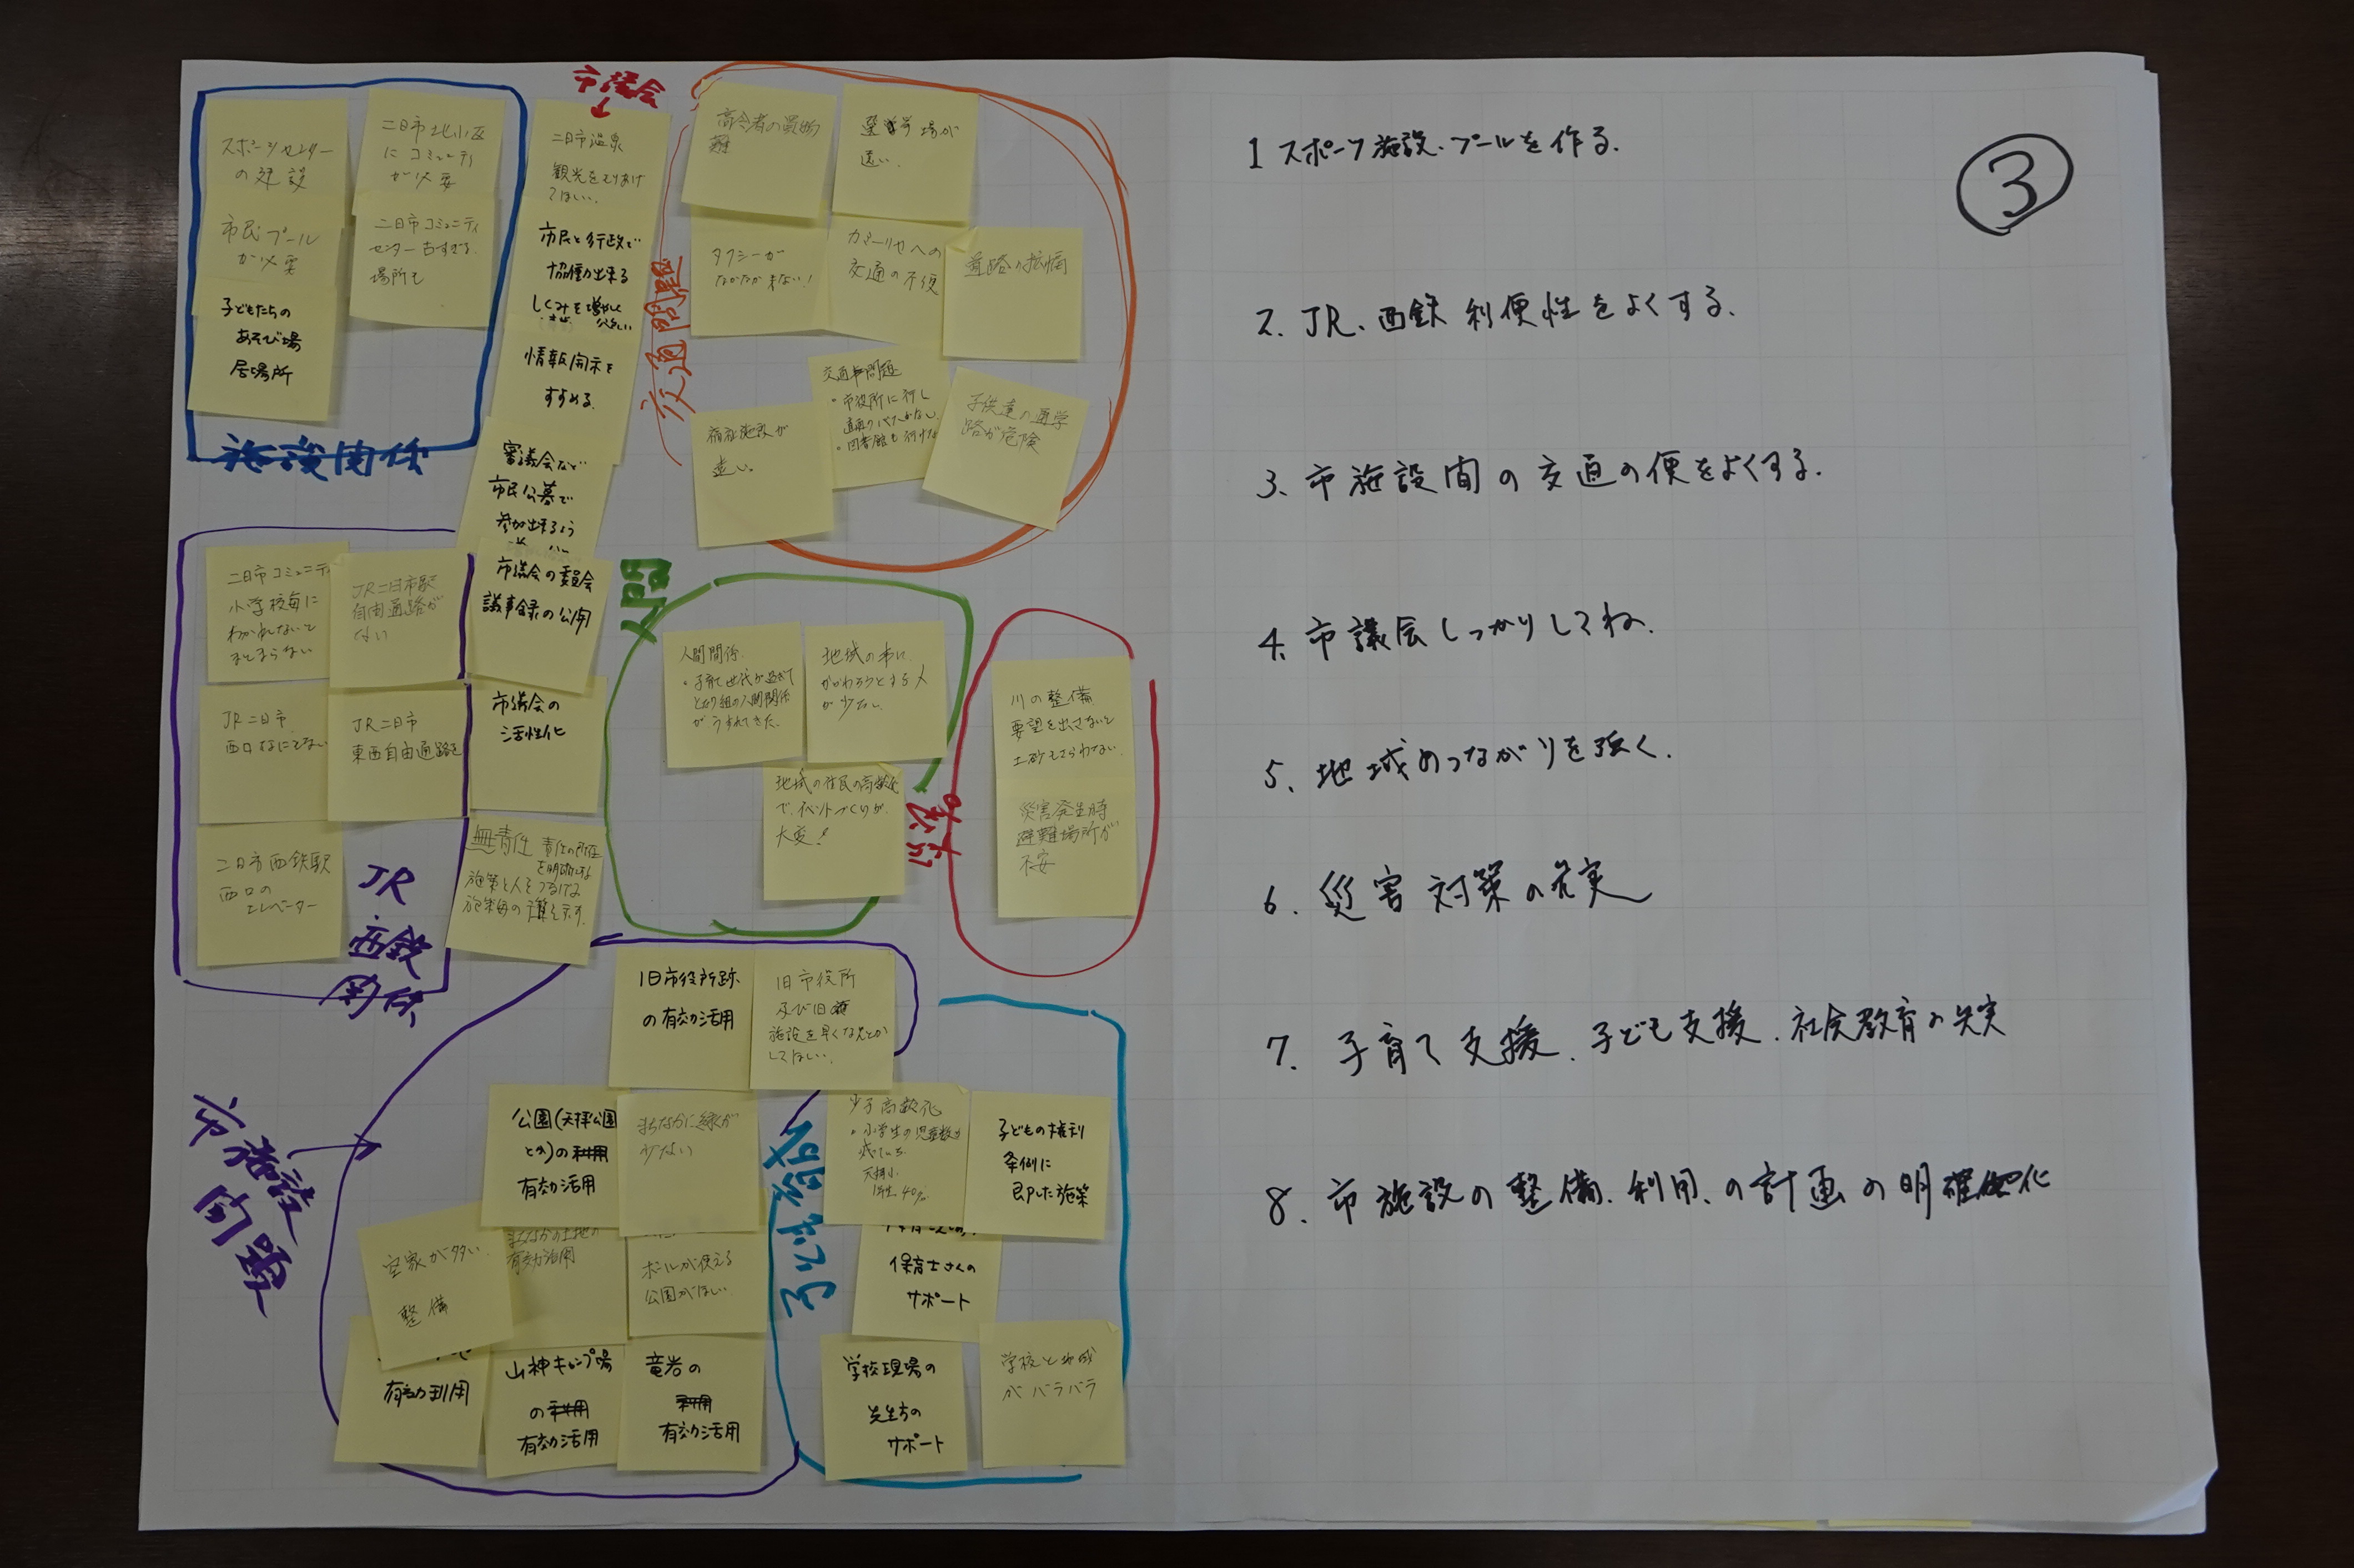 施設関係
スポーツセンター
の建設
二日市北小区
にコミュニティ
が必要
市民プール
が必要
二日市コミュニティ
センター古すぎる
場所も
子どもたちの
あそび場
居場所
市議会
↓
二日市温泉
観光をもりあげ
てほしい。
市民と行政で
協働が出来る
しくみを増やして
情報開示を
すすめる
審議会など
市民公募で
参加出来るよう
市議会の委員会
議事録の公開
市議会の
活性化
無責任 責任の所在
を明確にする
交通問題
高令者の買物
難
場が
遠い。
タクシーが
なかなか来ない!
カミーリヤへの
交通の不便
道路の拡幅
福祉施設が
遠い。
交通事問題
・市役所に対し
直通のバスがない
・図書館も行けない
子供達の通学
路が危険
二日市コミュニティ
小学校毎に
わかれないと
まとまらない
JR二日市駅
自由通路が
ない
JR二日市
西口なにもない
JR二日市
東西自由通路を
二日市西鉄駅
西口の
エレベーター
JR
西鉄
関係
人間
人間関係
・子育て世代が過ぎて
となり組の人間関係
がうすれてきた。
地域の事に
かかわろうとする人
が少ない
地域の住民の高齢化
で、イベントづくりが
大変!
災害
川の整備
要望を出さないと
土砂もさらわない
災害発生時
避難場所が
不安
市施設
問題
旧市役所跡
の有効活用
旧市役所
及び旧
施設を早くなんとか
してほしい。
公園(天拝公園
とか)の利用
有効活用
まちなかに緑が
少ない
空家が多い
整備
まちなかの土地の
有効活用
ボールが使える
公園がほしい
有効利用
山神キャンプ場
の利用
有効活用
竜岩の
利用
有効活用
少子高齢化
・小学生の児童数が
減っている
天拝小
1年生 40%
子どもの権利
条例に
即した施策
保育士さんの
サポート
学校現場の
先生方の
サポート
学校と地域
がバラバラ
③
1 スポーツ施設、プールを作る。
2. JR、西鉄 利便性をよくする。
3、市施設間の交通の便をよくする。
4、市議会しっかりしてね。
5、地域のつながりを強く。
6. 災害対策の充実
7. 子育て支援、子ども支援、社会教育の充実
8. 市施設の整備、利用、の計画の明確化